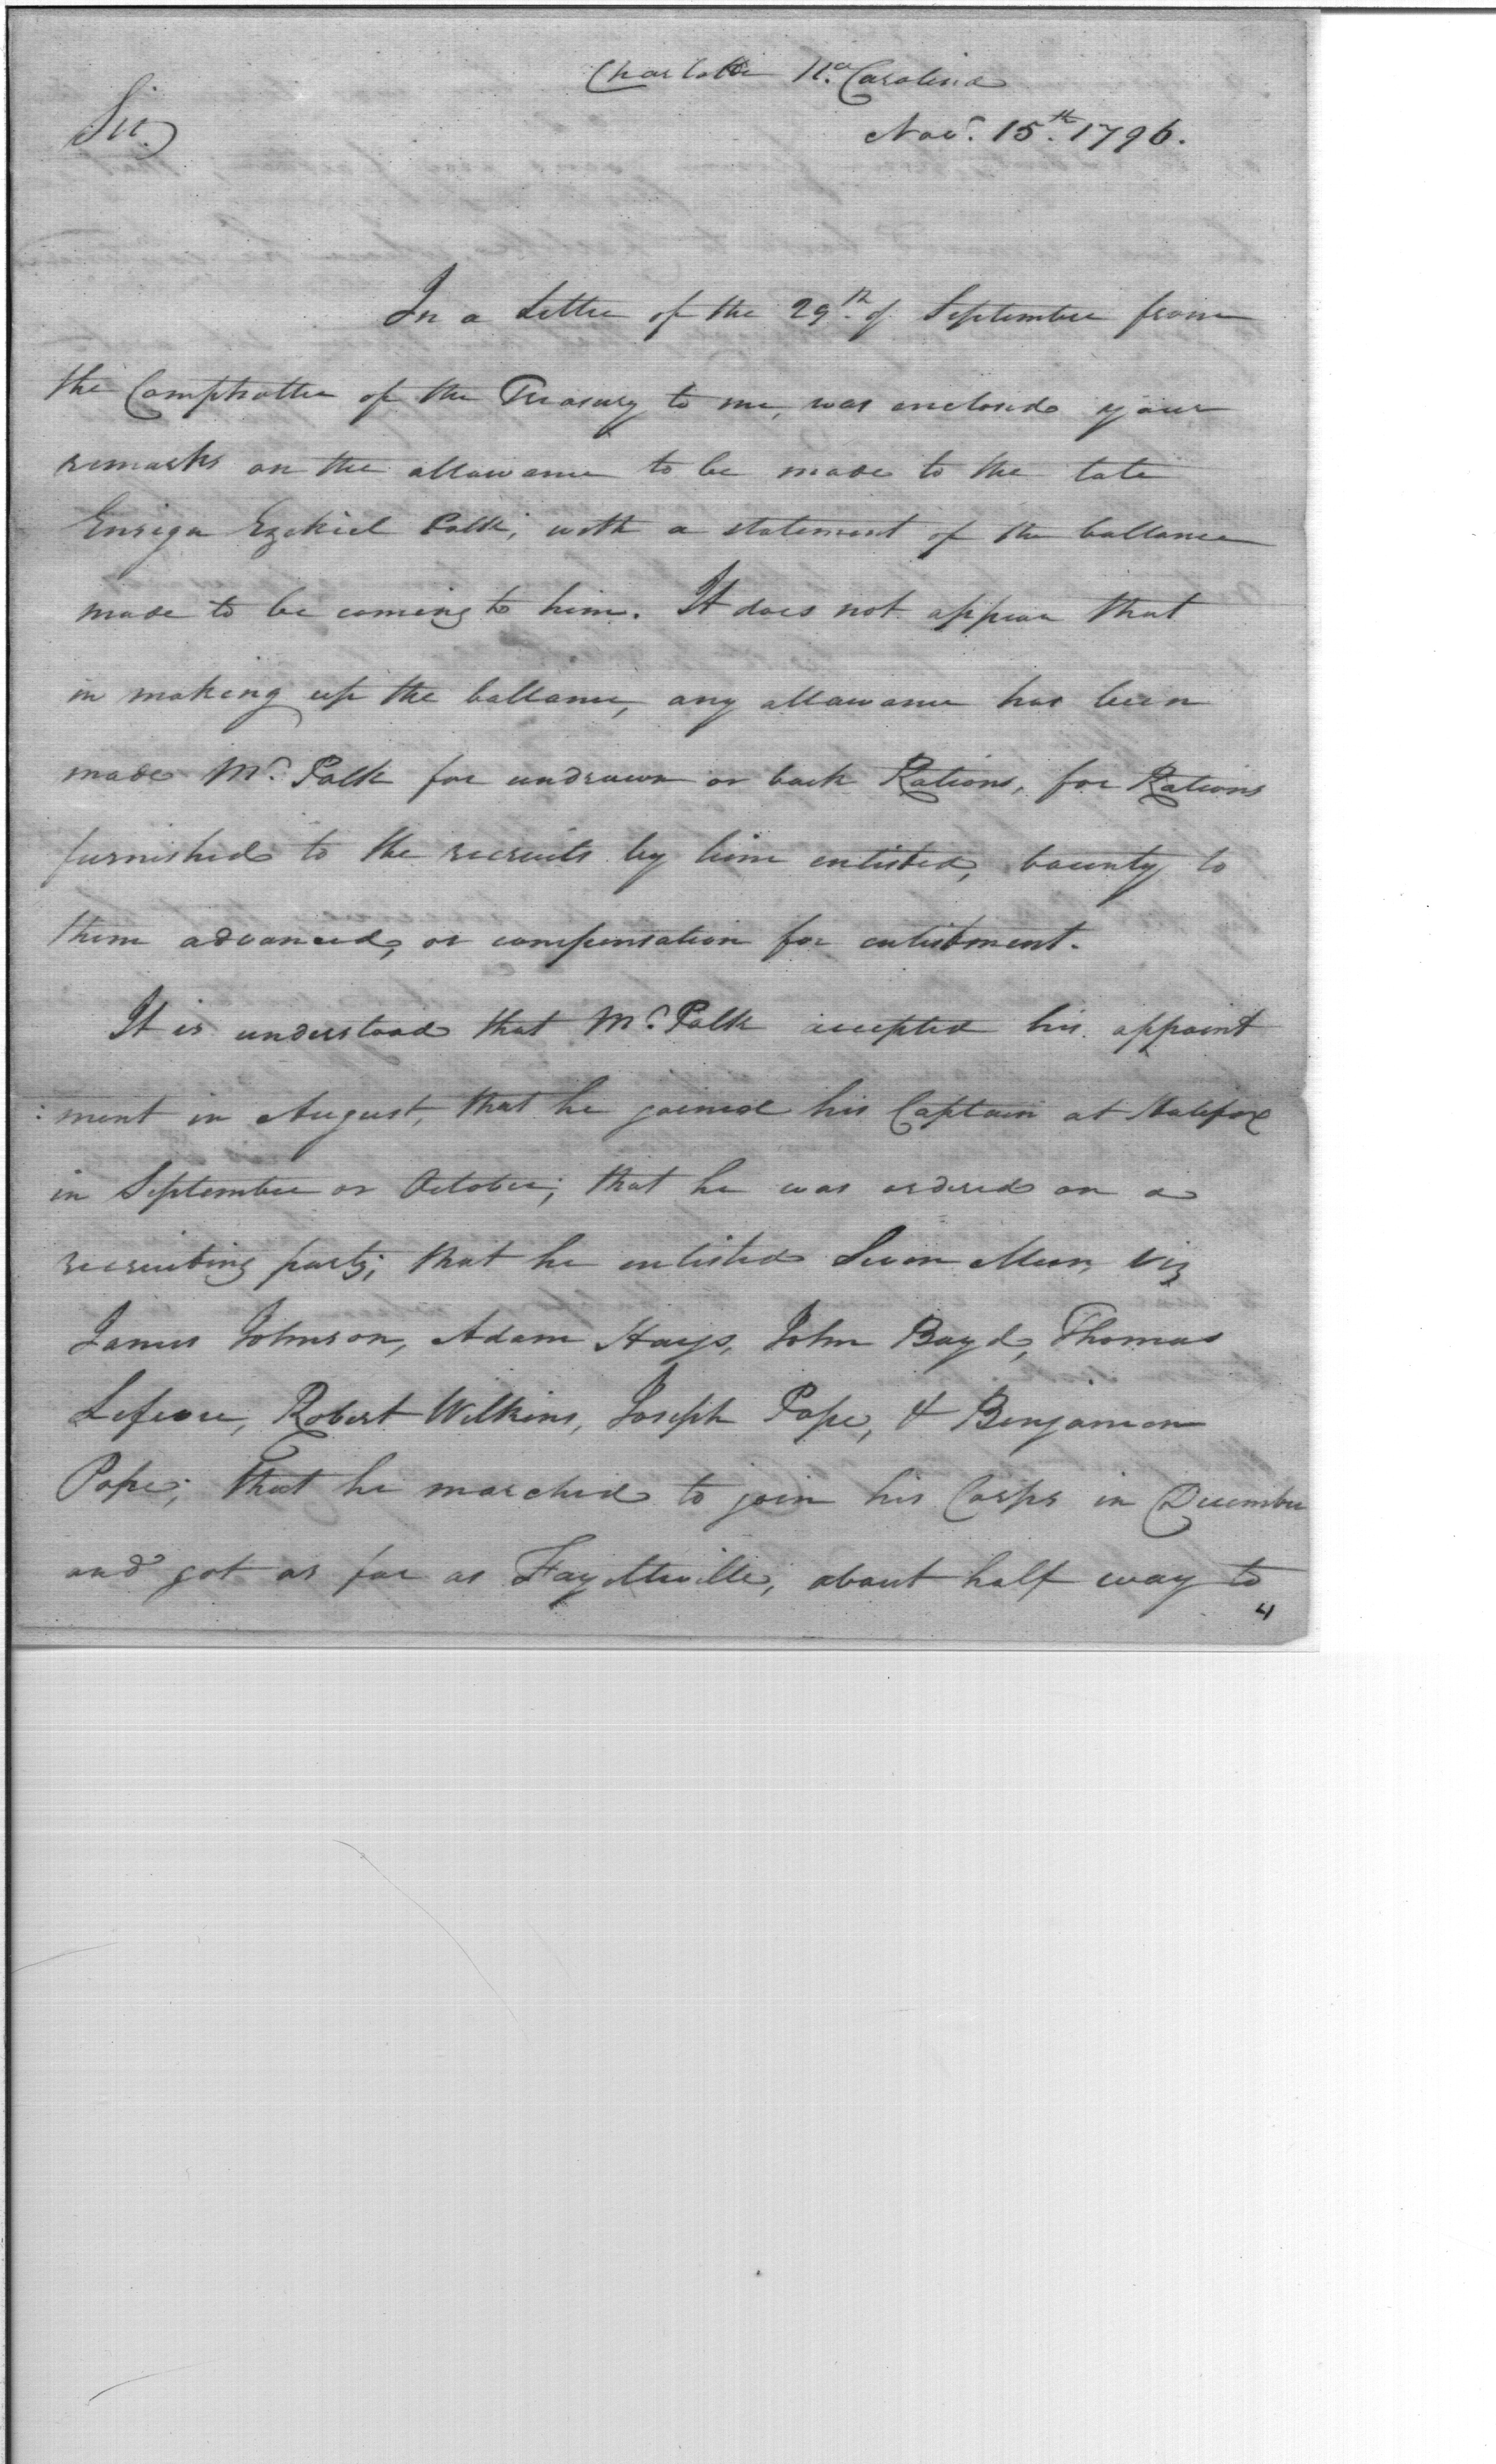 Charlotte No. Carolina
Sir,
Novr. 15th. 1796.
In a Letter of the 29th. of September from
the Comptroller of the Treasury to me, was enclosed your
remarks on the allowance to be made to the late
Ensign Ezekiel Polk; with a statement of the ballance
made to be coming to him. It does not appear that
in making up the ballance, any allowance has been
made Mr. Polk for undrawn or back Rations, for Rations
furnished to the recruits by him enlisted, bounty to
them advanced, or compensation for enlistment.
It is understood that Mr. Polk accepted his appoint
: ment in August, that he joined his Captain at Halifax
in September or October; that he was ordered on a
recruiting party; that he enlisted Seven Men, viz
James Johnson, Adam Hays, John Boyd, Thomas
Lefevre, Robert Wilkins, Joseph Pope, & Benjamin
Pope; That he marched to join his Corps in December
and got as far as Fayetteville, about half way to
4